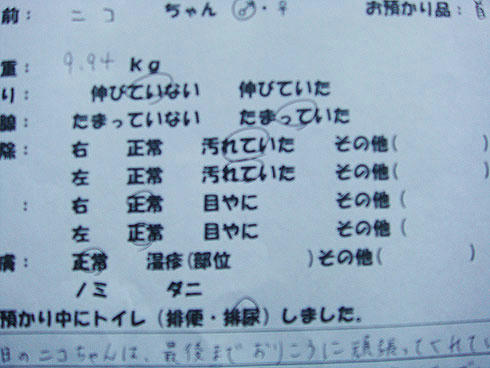 前： ニコ ちゃん ♂・♀ お預かり品：首
重： 9.94 kg
り： 伸びていない 伸びていた
腺： たまっていない たまっていた
除： 右 正常 汚れていた その他( )
左 正常 汚れていた その他( )
： 右 正常 目やに その他(
左 正常 目やに その他(
膚： 正常 湿疹(部位 )その他( )
ノミ ダニ
預かり中にトイレ（排便・排尿）しました.
日のニコちゃんは、最後までおりこうに頑張ってくれてい